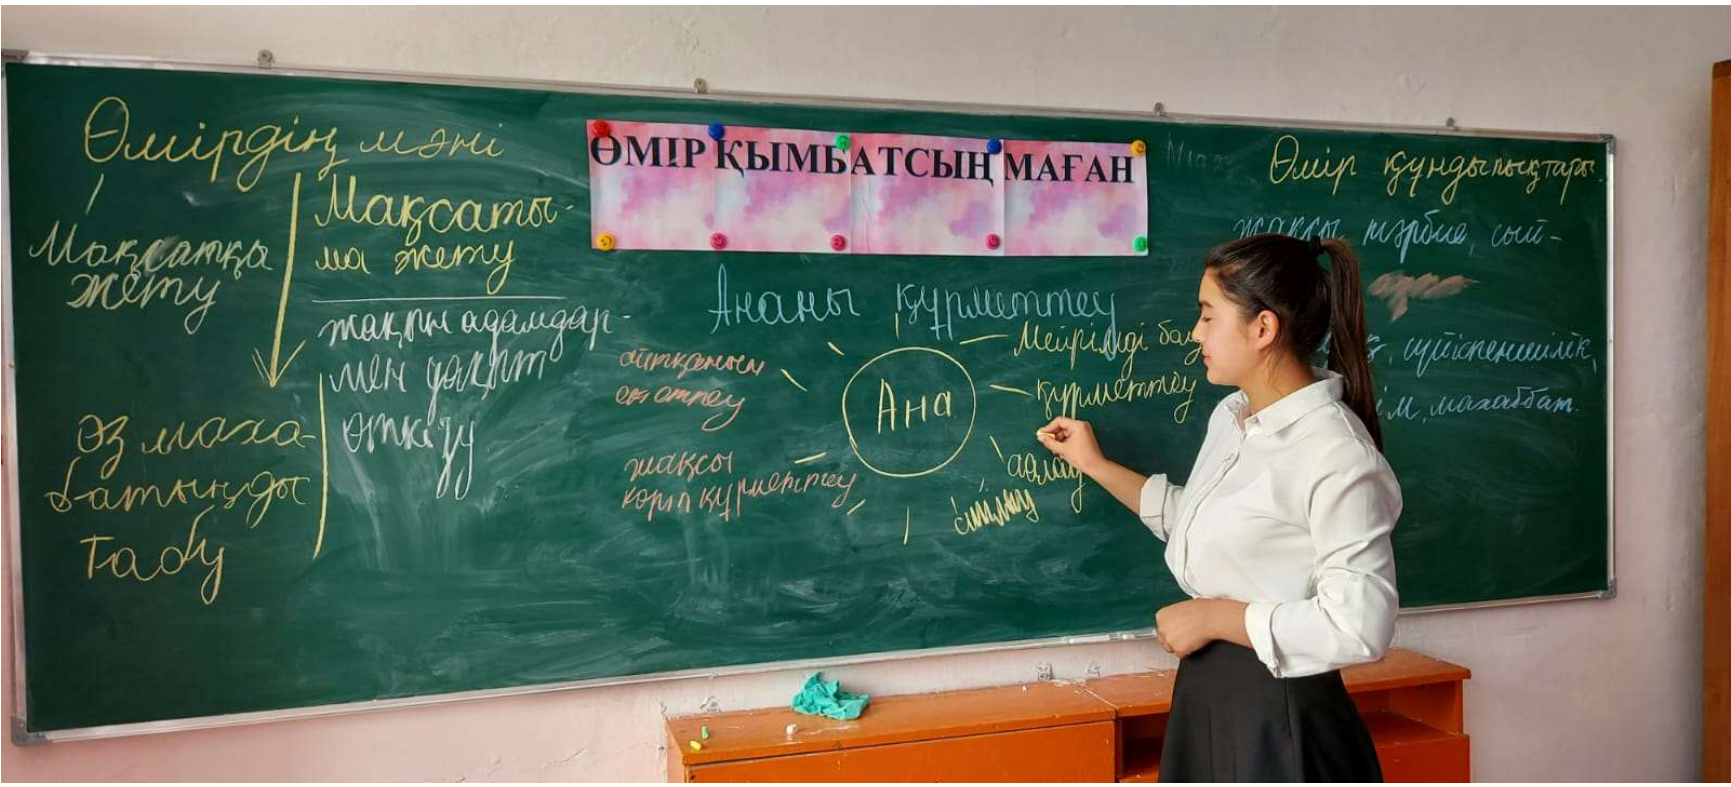 Өмірдің мәні
Мақсатқа
жету
Мақсаты-
ма жету
жақын адамдар-
мен уақыт
өткізу
өз маха-
батыңды
табу
ӨМІР ҚЫМБАТСЫҢ МАҒАН
Ананы құрметтеу
Ана
айтқанын
орғаттау
жақсы
көріп құрметтеу
Мейірімді
құрметтеу
аялау
Өмір құндылықтары
жақсы тәрбие, сый-
сүйіспеншілік,
махаббат.